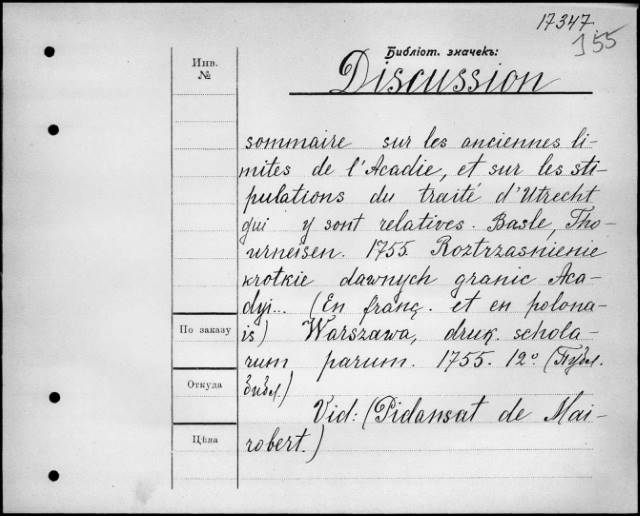 17347.
155
Библіот. значекъ:
Discussion
Инв.
№
sommaire sur les anciennes li-
mites de l'Acadie, et sur les sti-
pulations du traité d'Utrecht
qui y sont relatives. Basle, Tho-
urneisen. 1755. Roztrzasnienie
krotkie dawnych granic Aca-
dyi... (En franç. et en polona-
is) Warszawa, druk. schola-
rum parum. 1755. 12º (Публ.
библ.)
Vid: (Pidansat de Mai-
robert.)
По заказу
Откуда
Цѣна